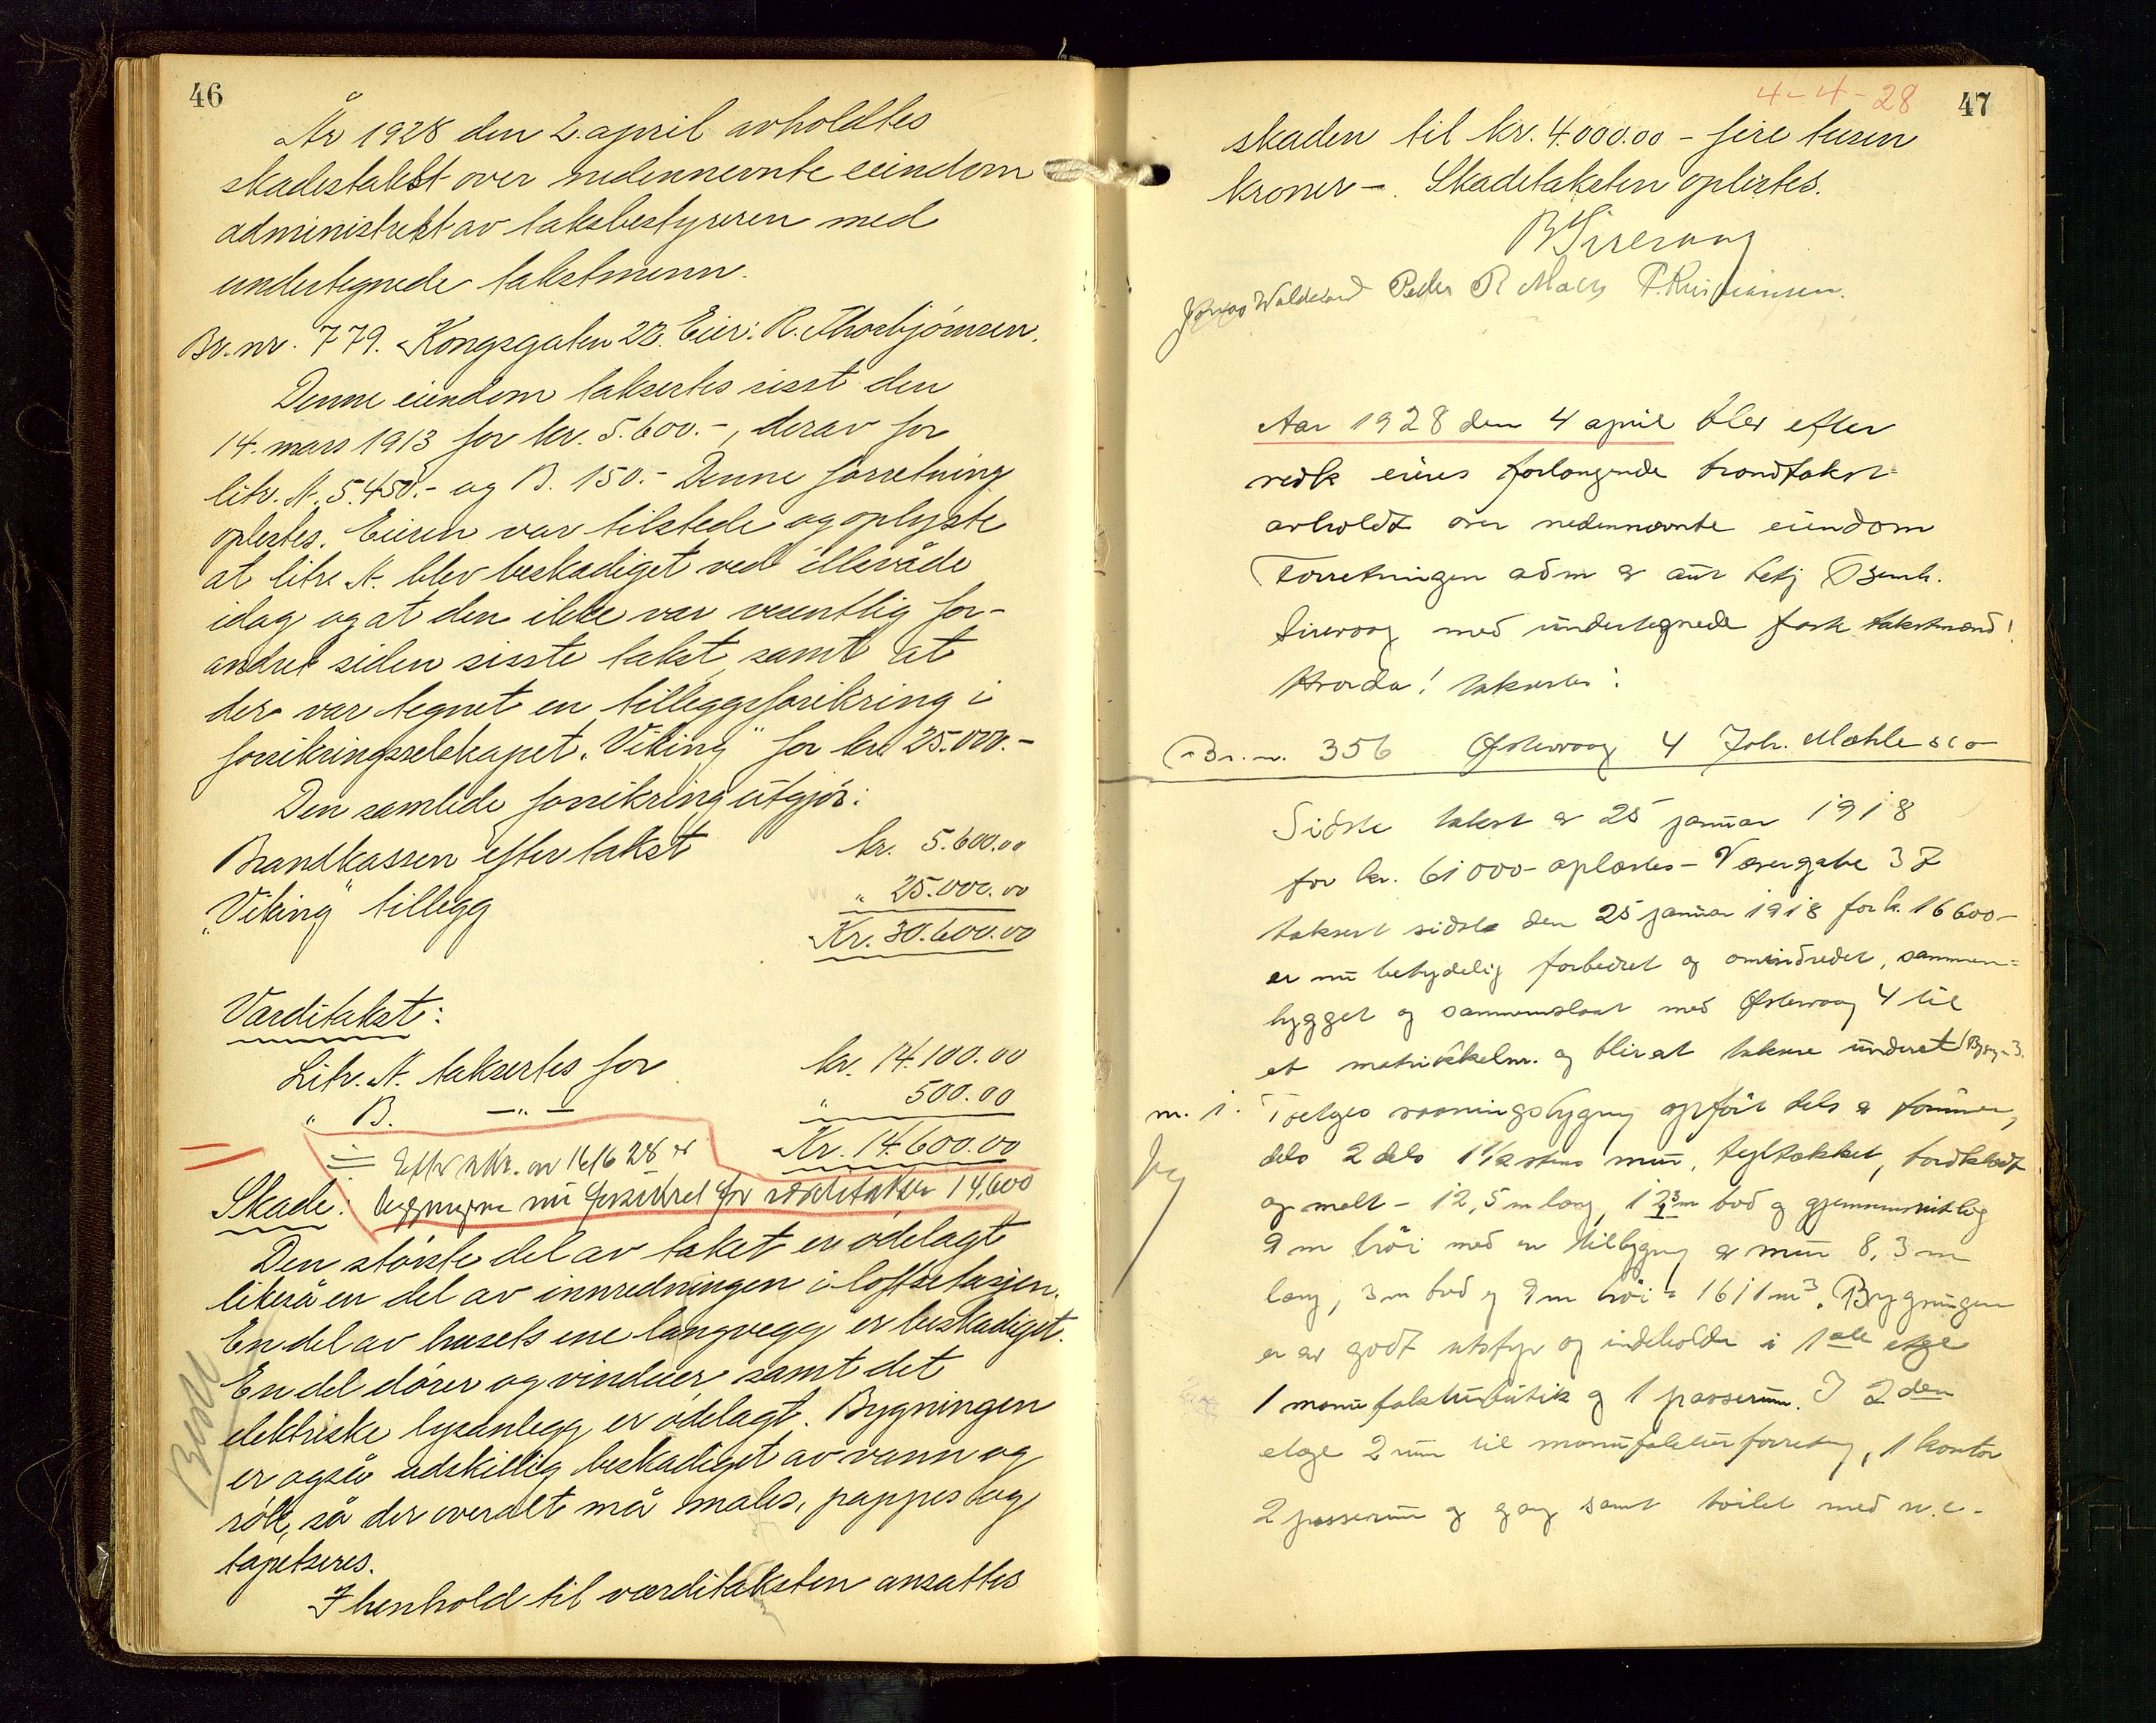 46
År 1928 den 2. april avholdtes
skadestakst over nedennevnte eiendom
administrert av takstbestyreren med
undertegnede takstmenn.
Br. nr. 779. Kongsgaten 22. Eier: R. Thorbjørnsen.
Denne eiendom taksertes sisst den
14. mars 1913 for kr. 5.600.-, derav for
litr. A. 5.450.- og B. 150.- Denne forretning
oplestes. Eieren var tilstede og oplyste
at litr. A. blev beskadiget ved illsvåde
idag og at den ikke var vesentlig for-
andret siden sisste takst, samt at
der var tegnet en tilleggsforsikring i
forsikringsselskapet "Viking" for kr. 25.000.-
Den samlede forsikring utgjør:
Brandkassen efter takst kr. 5.600.00
"Viking" tillegg " 25.000.00
Kr. 30.600.00
Værditakst:
Litr. A. taksertes for kr. 14.100.00
" B. -"- " 500.00
Kr. 14.600.00
Efter skr. av 16/6 28 er
Skade: bygningene nu forsikret for værditaksten 14,600
Den største del av taket er ødelagt
likeså en del av innredningen i loftsetasjen.
En del av husets ene langvegg er beskadiget.
En del dører og vinduer samt det
elektriske lysanlegg er ødelagt. Bygningen
er også adskillig beskadiget av vann og
røk, så der overalt må males, pappes og
tapetseres.
I henhold til værditaksten ansattes
47
4-4-28
skaden til kr. 4.000.00 - fire tusen
kroner -. Skadetaksten oplestes.
B Sirevaag
Aar 1928 den 4 april blev efter
vedk eiers forlangende brandtakst
avholdt over nedennævnte eiendom
Forretningen adm av Bernh.
Sirevaag med undertegnede faste takstmænd!
Hvorda! taksertes:
Br. nr. 356 Østervaag 4 Joh. Mæhle & Co
Sidste takst av 25 januar 1918
for kr. 61000 - oplæstes - Vævergate 37
taksert sidste den 25 januar 1918 for k. 16600 -
er nu betydelig forbedret og omindredet, sammen=
bygget og sammenslaat med Østervaag 4 til
et matrikkelnr. og blir at taksere under et
m. 1. Toetges vaaningsbygning opført dels av tømmer,
dels 2 dels 1½ stens mur, tegltækket, bordklædt
og malt - 12,5 m lang, 12,3 m bred og gjennemsnitlig
9 m høi med en tilbygning av mur 8,3 m
lang, 3 m bred og 9 m høi = 1611 m³. Bygningen
er av godt utstyr og indeholder i 1ste etge
1 manufakturbutik og 1 passerum. I 2den
etage 2 rum til manufakturforretning, 1 kontor
2 passerum og gang samt toilet med w.c -